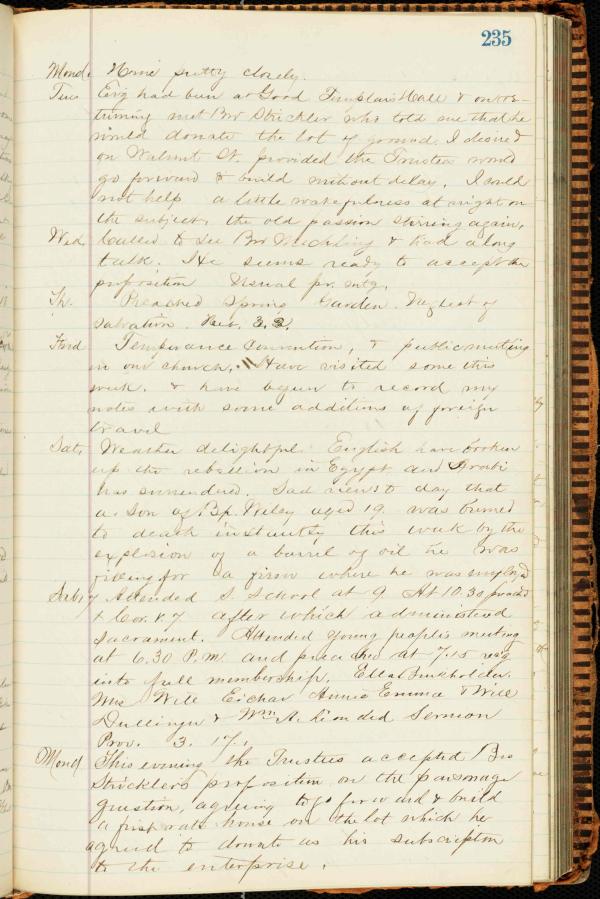 235
Mond. Home pretty closely.
Tues Evg had been at Good Templars Hall & on re-
turning met Bro Strickler who told me that he
would donate the lot of ground I desired
on Walnut St. provided the Trustees would
go forward & build without delay. I could
not help a little wakefulness at night on
the subject, the old passion stirring again.
Wed. Called to see Bro Mechling & had a long
talk. He seems ready to accept the
proposition Usual pr. mtg.
Th. Preached Spring Garden. Neglect of
Salvation. Heb. 2.3.
Frid Temperance Convention, & public meeting
in our church. Have visited some this
week. & have begun to record my
notes with some additions of foreign
travel
Sat. Weather delightful. English have broken
up the rebellion in Egypt and Arabi
has surrendered. Sad news to day that
a son of Bp. Wiley aged 19 was burned
to death instantly this week by the
explosion of a barrel of oil he was
for a firm where he was employed
Sab'y Attended S. School at 9 At 10.30 preached
1 Cor. V. 7 after which administered
Sacrament. Attended young peoples meeting
at 6.30 P.M. and preached at 7.15 rec'g
into full membership. Ella Burkholder.
Will Eichar Annie Emma & Will
Dullinger & Wm A. Sermon
Prov. 3. 17.
Mond This evening the Trustees accepted Bro
Strickler's proposition on the parsonage
question, agreeing to go forward & build
a first rate house on the lot which he
agreed to donate as his subscription
to the enterprise.